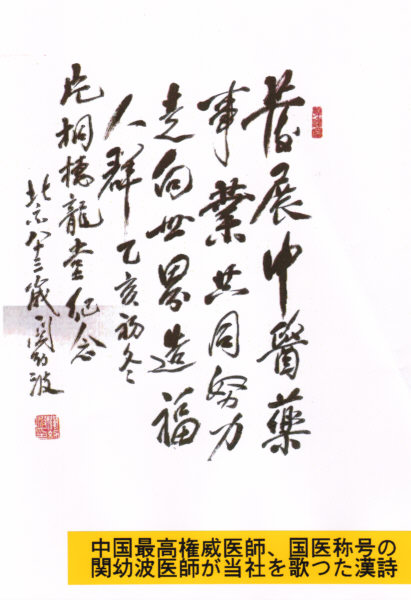 發展中醫藥
事業共同努力
走向世界造福
人群 乙亥初冬
片桐棲龍堂纪念
北京八十三歲 関幼波
中国最高権威医師、国医称号の
関幼波医師が当社を歌つた漢詩